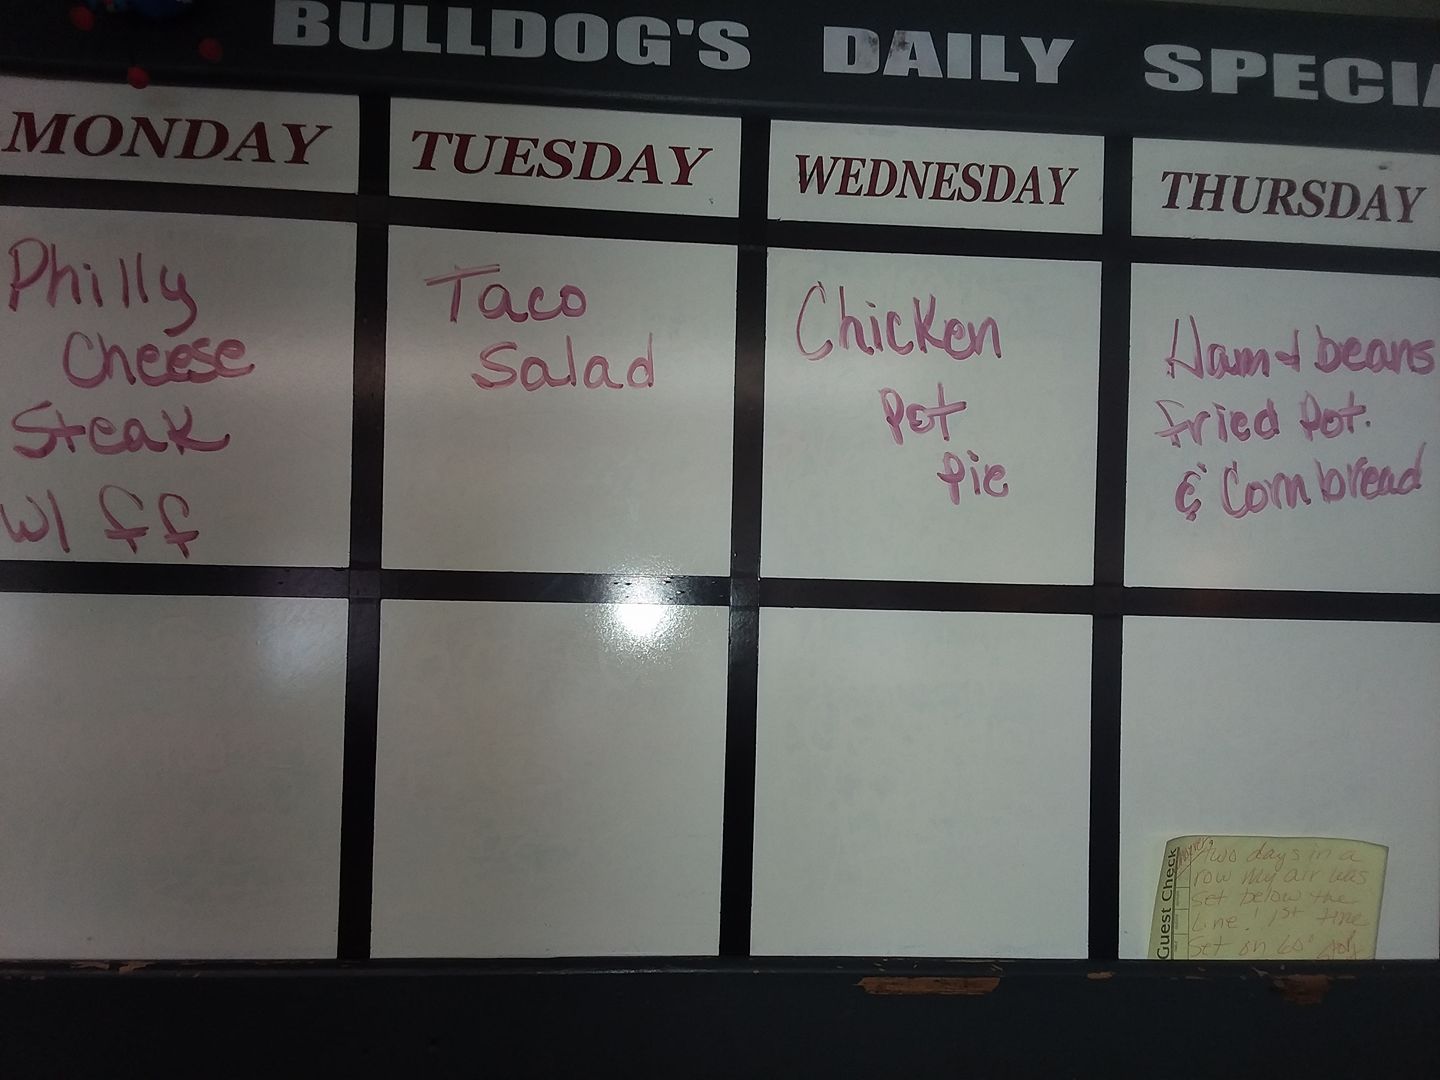 BULLDOG'S DAILY SPECIA
MONDAY
TUESDAY
WEDNESDAY
THURSDAY
Philly
Cheese
Steak
w/ ff
Taco
Salad
Chicken
Pot
Pie
Ham + beans
Fried Pot.
& Cornbread
Guest Check
Two days in a
row my air was
set below the
Line! 1st time
Set on 60°